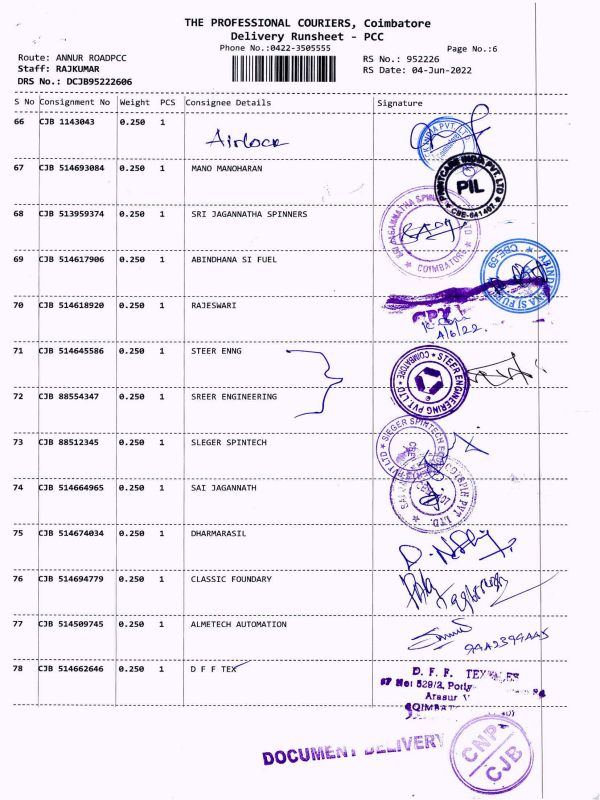 THE PROFESSIONAL COURIERS, Coimbatore
Delivery Runsheet - PCC
Phone No.:0422-3505555 Page No.:6
Route: ANNUR ROADPCC RS No.: 952226
Staff: RAJKUMAR RS Date: 04-Jun-2022
DRS No.: DCJB95222606
S No Consignment No Weight PCS Consignee Details Signature
66 CJB 1143043 0.250 1 Airlock
67 CJB 514693084 0.250 1 MANO MANOHARAN
PRINTCARE INDIA PVT. LTD
PIL
CBE-641 407
68 CJB 513959374 0.250 1 SRI JAGANNATHA SPINNERS
COIMBATORE
69 CJB 514617906 0.250 1 ABINDHANA SI FUEL
CBE-59
70 CJB 514618920 0.250 1 RAJESWARI
4/6/22.
71 CJB 514645586 0.250 1 STEER ENNG
STEER ENGINEERING PVT LTD
COIMBATORE
72 CJB 88554347 0.250 1 SREER ENGINEERING
73 CJB 88512345 0.250 1 SLEGER SPINTECH
SIEGER SPINTECH
74 CJB 514664965 0.250 1 SAI JAGANNATH
PVT. LTD.
75 CJB 514674034 0.250 1 DHARMARASIL
76 CJB 514694779 0.250 1 CLASSIC FOUNDARY
77 CJB 514509745 0.250 1 ALMETECH AUTOMATION
78 CJB 514662646 0.250 1 D F F TEX
D. F. F.
Arasur
DOCUMENT DELIVERY
CNP
CJB